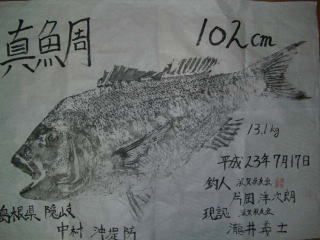 真魚周
102cm
13.1kg
平成23年7月17日
釣人
片岡洋次郎
現認
瀧井義士
島根県隠岐
中村 沖堤防